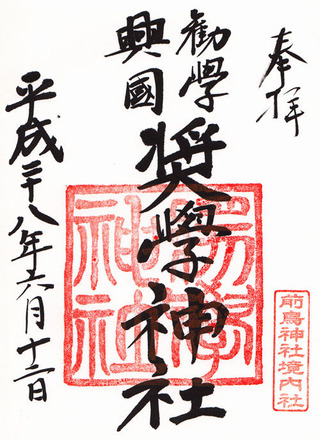 奉拝
勧學
興國
奨學神社
奨學神社
前鳥神社境内社
平成二十八年六月十二日